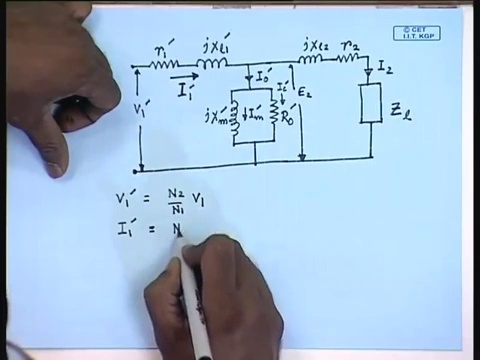 © CET
I.I.T. KGP
r₁′ jxₗ₁′ jxₗ₂ r₂
I₁′ I₀′ I₂
V₁′ jXₘ′ Iₘ′ I꜀′ R₀′ E₂ Zₗ
V₁′ = N₂/N₁ V₁
I₁′ = N